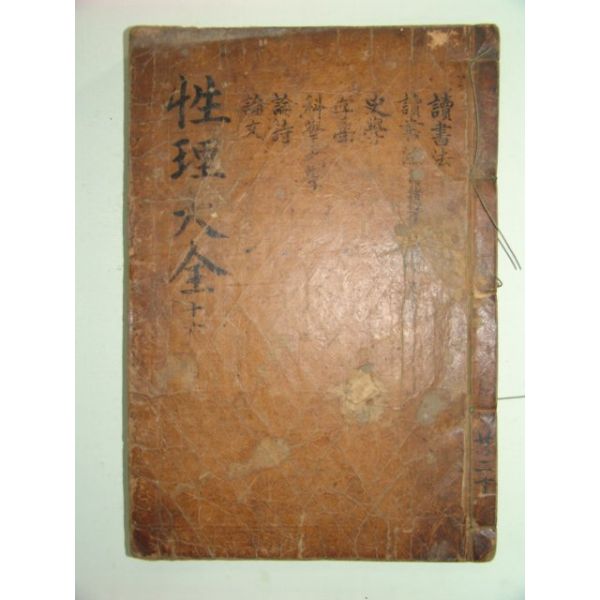 共二十
讀書法
讀書法
史學
字學
科擧之學
論詩
論文
性理大全 十六